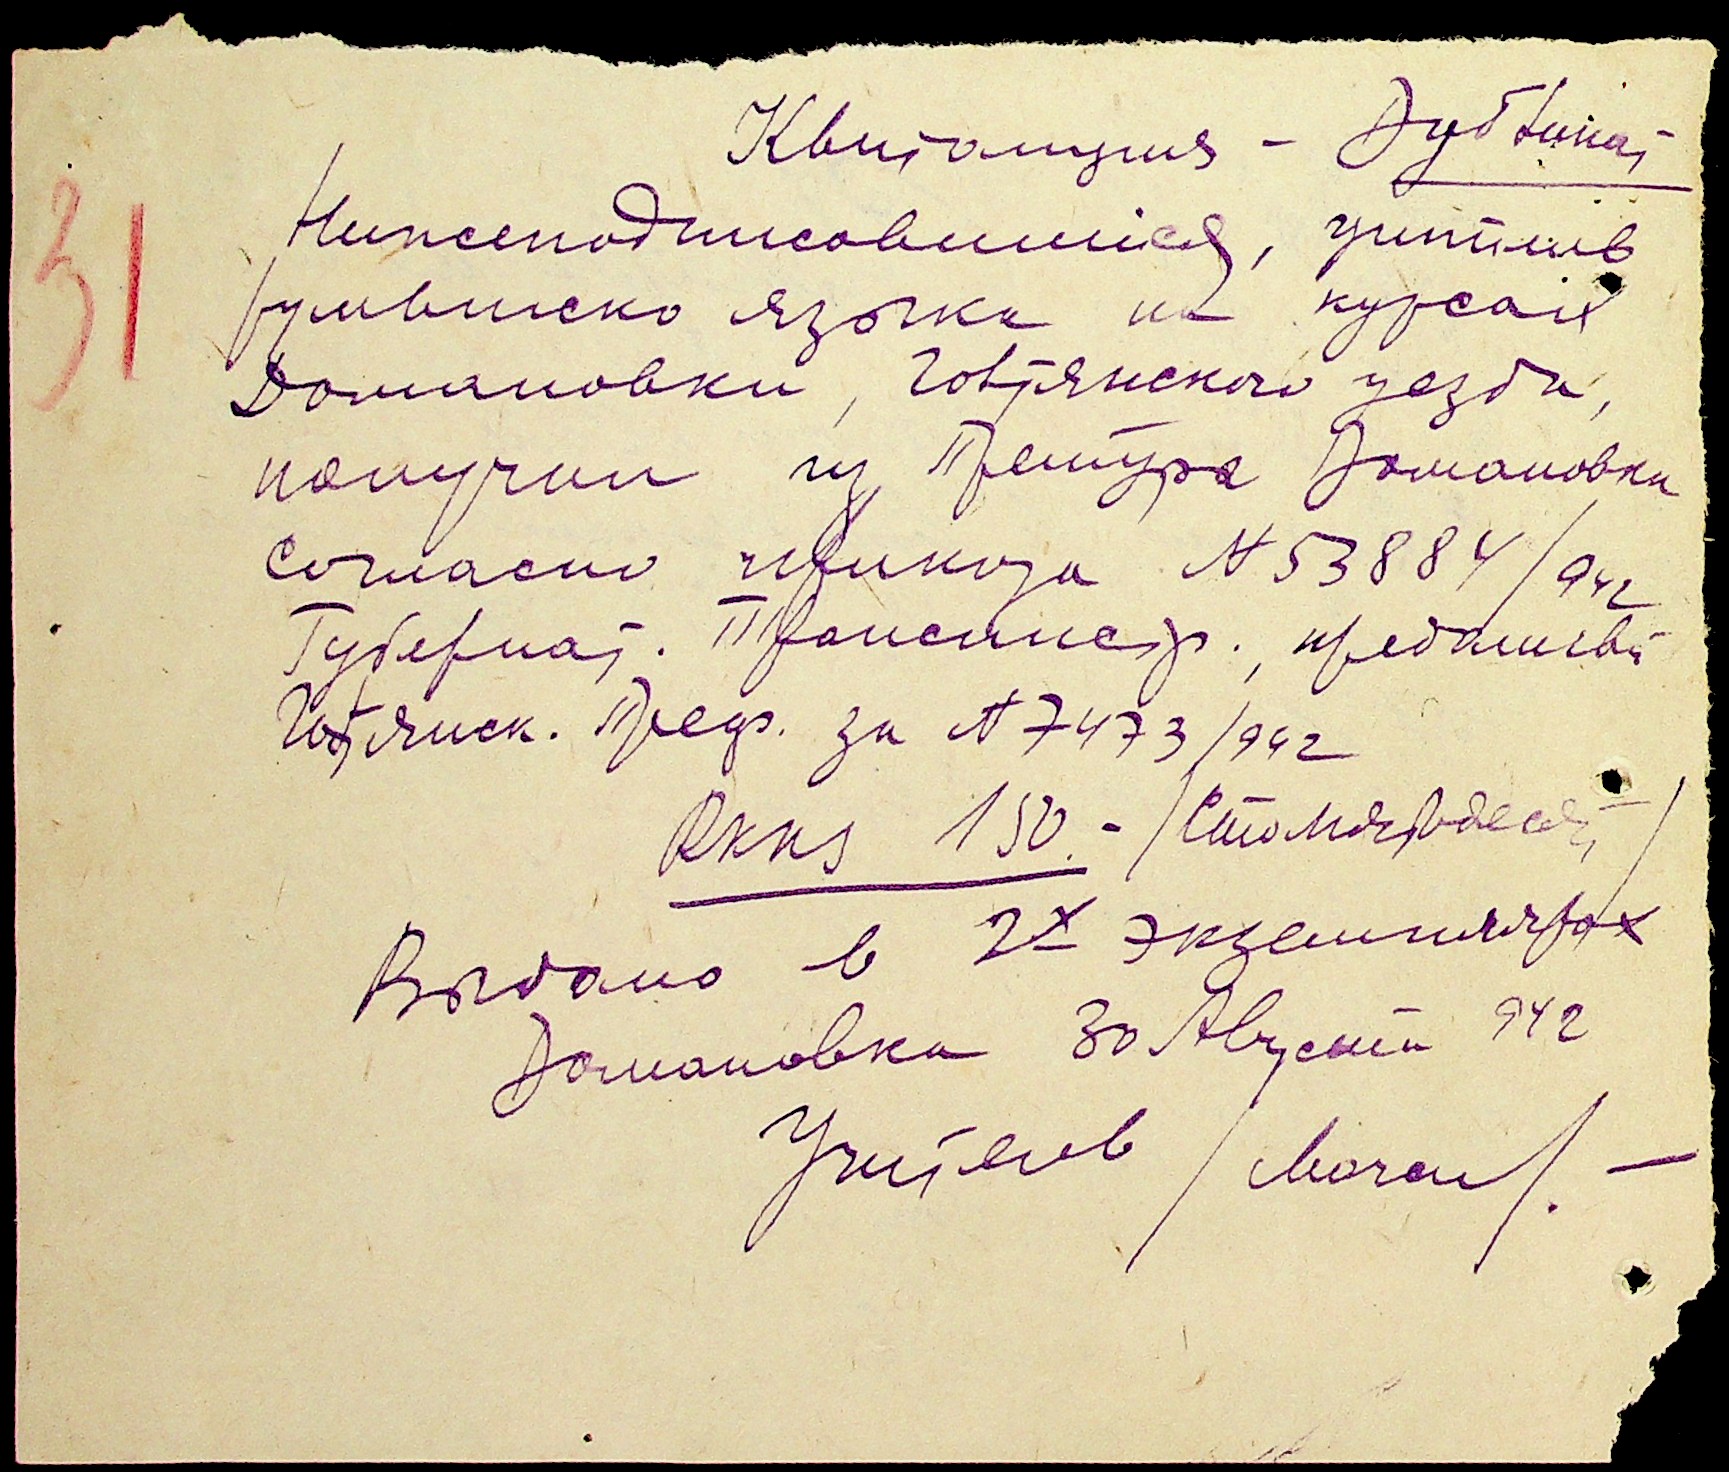 Квитанция – Дубликат
31
Нижеподписавшийся, учитель
румынско языка на курсах
Домановки, Голтянского уезда,
получил из Претура Домановки
согласно приказа N 53884/942
Губернат. Транснистр., предъявлен
Голтянск. Преф. за N 7473/942
RKKS 150.- /Стопятьдесят/
Выдано в 2х экземплярах
Домановка 30 Августа 942
Учитель /